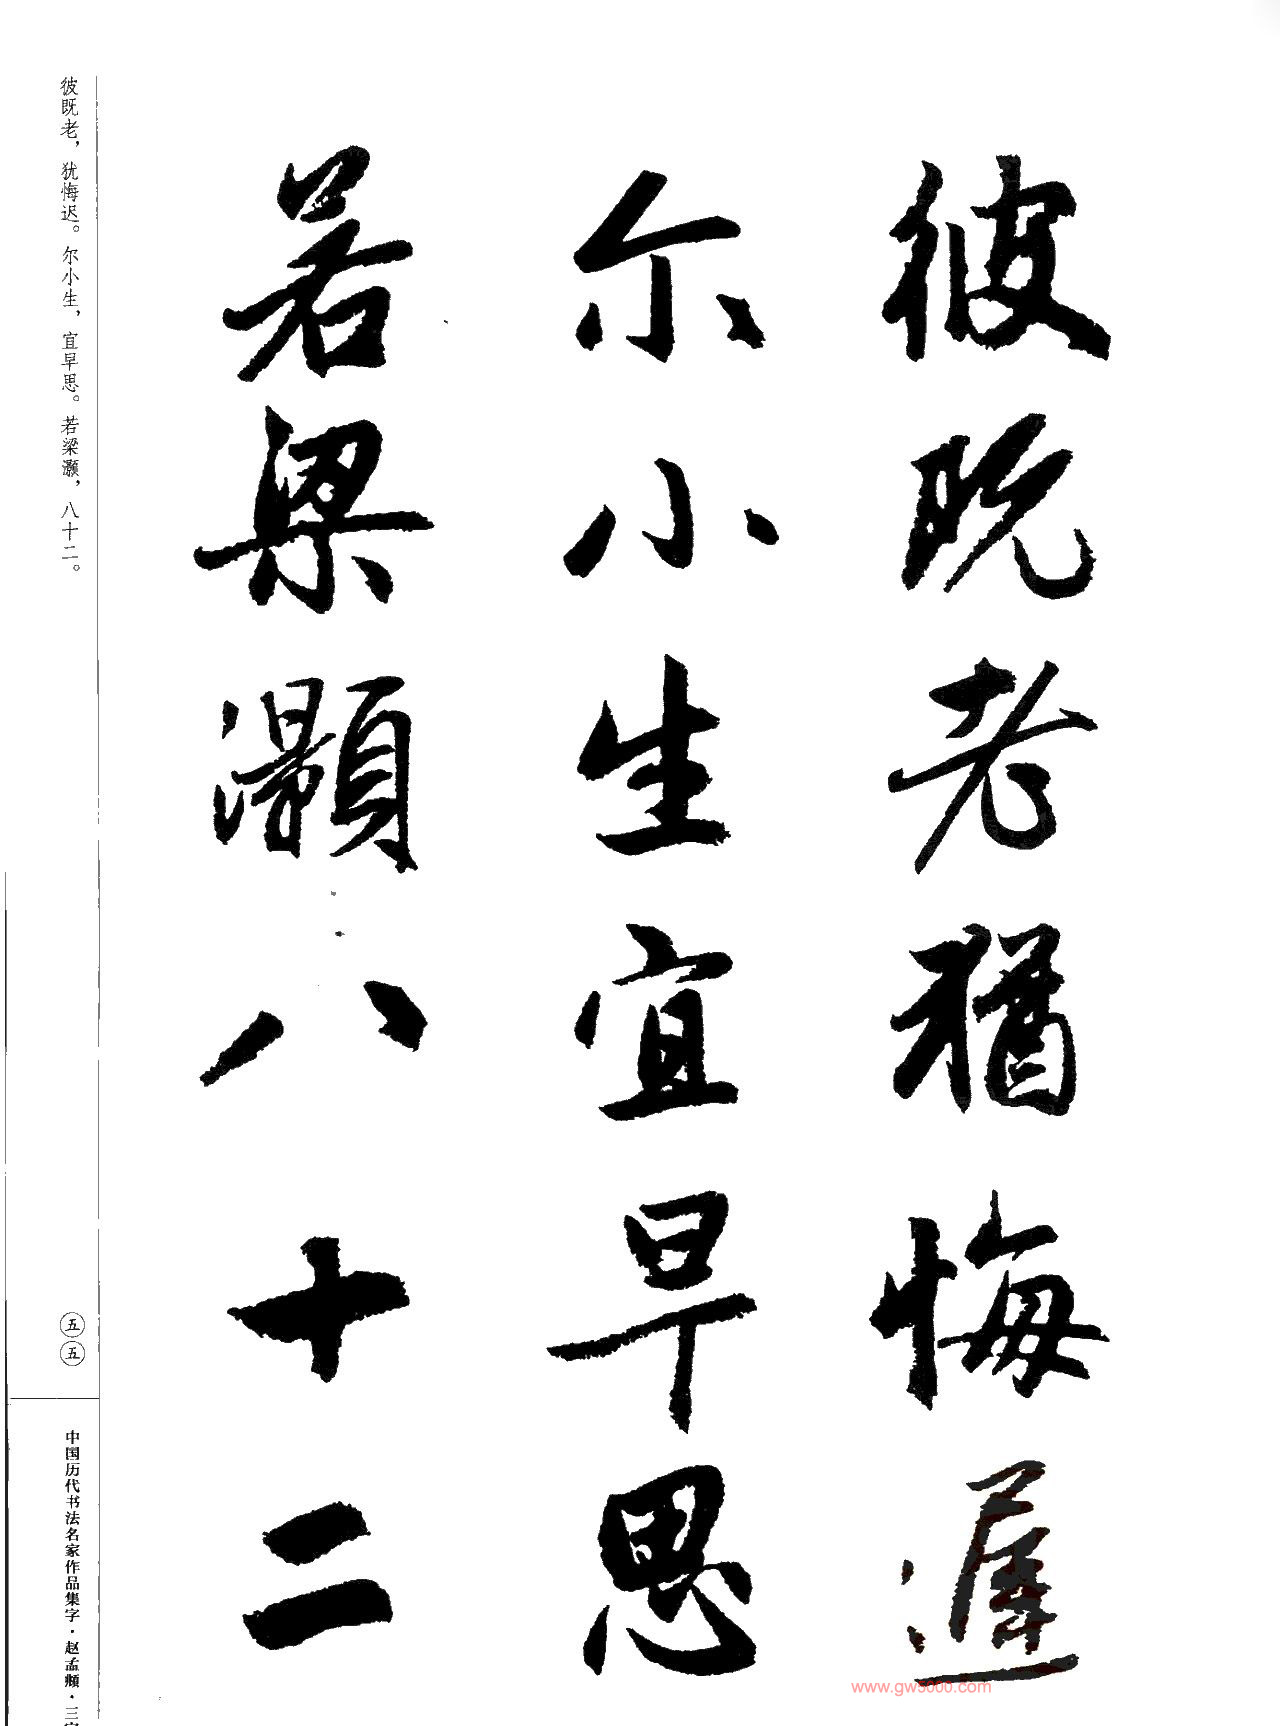 彼既老犹悔遲
尔小生宜早思
若梁灝八十二
彼既老，犹悔迟。尔小生，宜早思。若梁灏，八十二。
五五
中国历代书法名家作品集字·赵孟頫·三字
www.gw5000.com